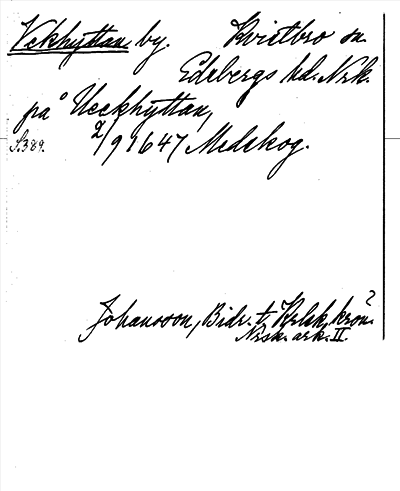 Vekhyttan by. Kvistbro sn.
Edsbergs hd. Nrk.
på Ueckhyttan,
S. 389. 2/9 1647 Medskog.
Johansson, Bidr. t. Krlsk. kron.?
Nrsk. ark. II.